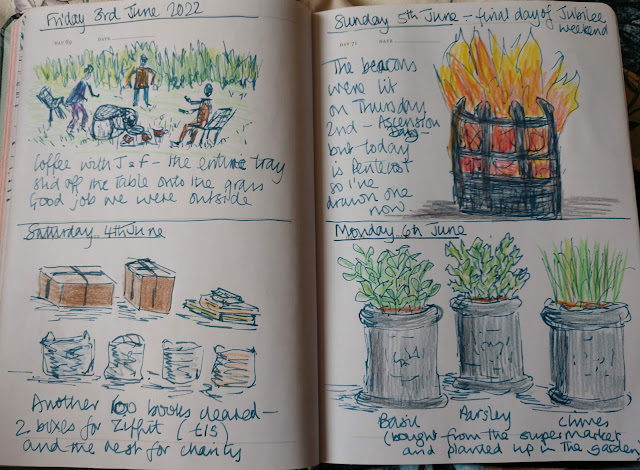 Friday 3rd June 2022
DAY
DATE
Coffee with J & F - the entire tray
slid off the table onto the grass
Good job we were outside
Saturday 4th June
Another 100 books cleared -
2 boxes for Ziffit (£15)
and the rest for charity
Sunday 5th June - final day of Jubilee
weekend
DAY 71
DATE
The beacons
were lit
on Thursday
2nd - Ascension
Day -
but today
is Pentecost
so I've
drawn one
now
Monday 6th June
Basil Parsley Chives
(bought from the supermarket
and planted up in the garden)